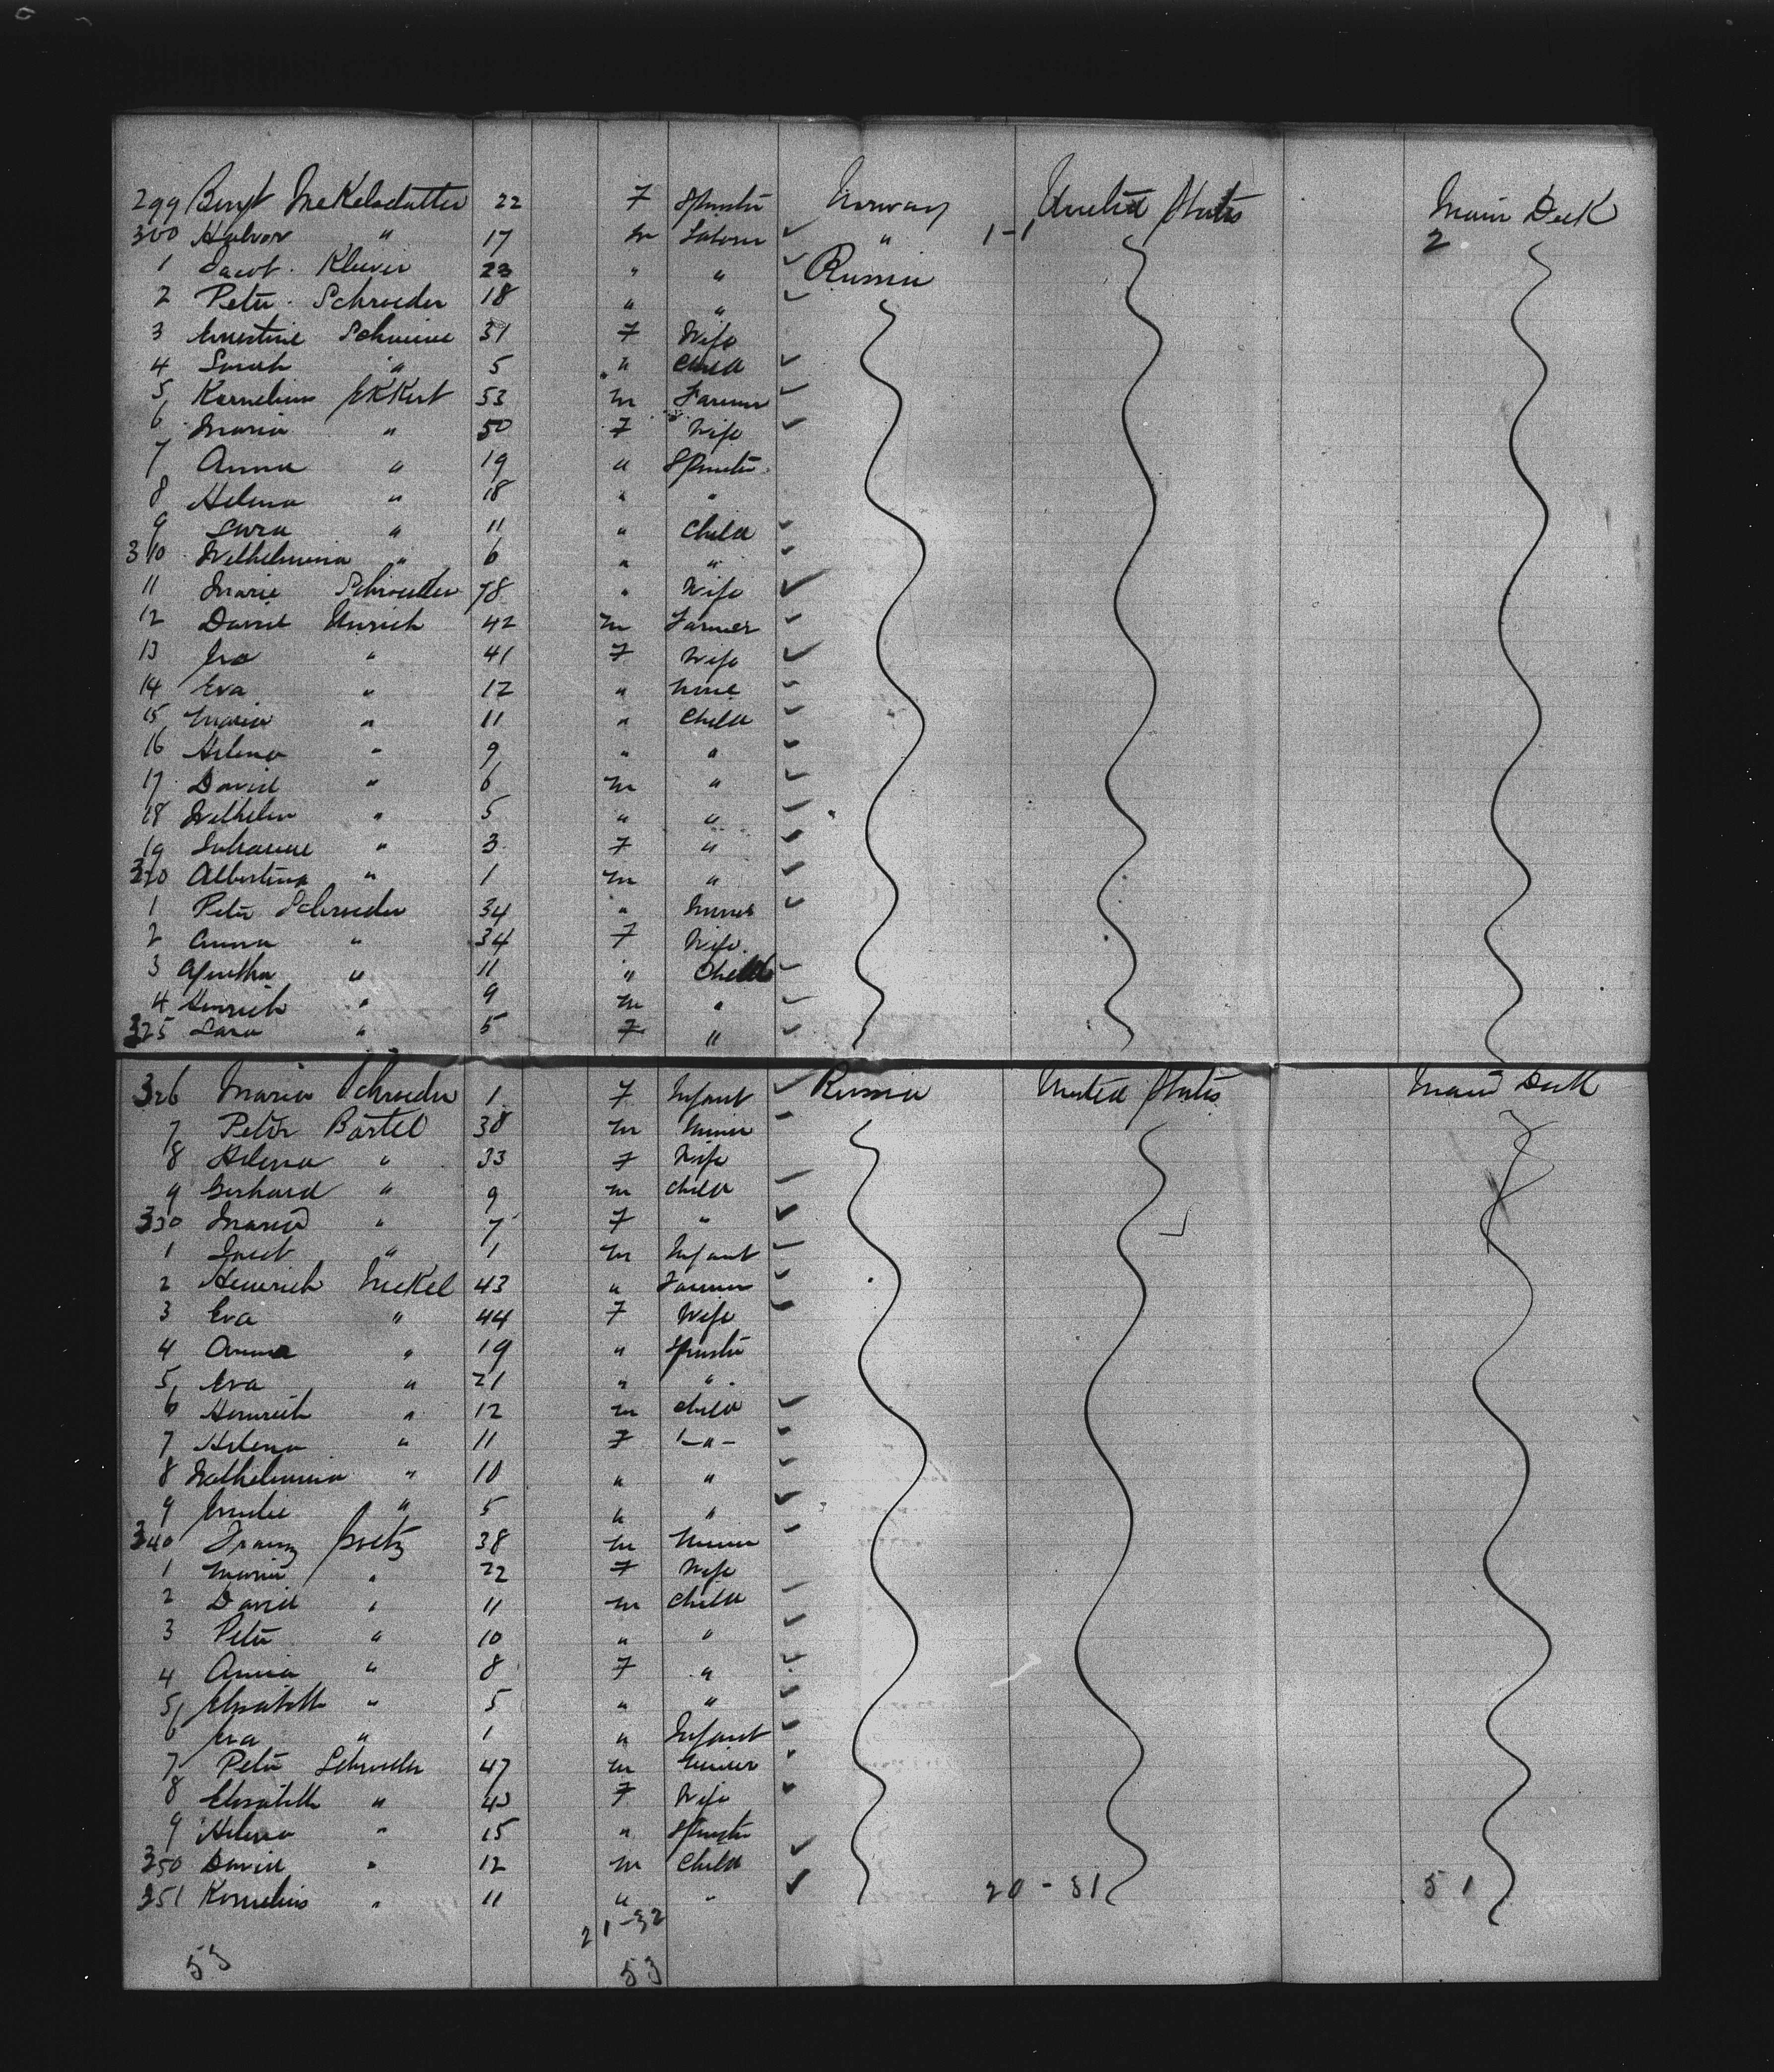 299 22 F Spinster Norway United States Main Deck
300 Halvor " 17 m Laborer " 1-1 2
1 Jacob Kliewer 23 " " Russia
2 Peter Schroeder 18 " "
3 Ernestine 31 F Wife
4 Sarah " 5 " Child
5 Kornelius Ekkert 53 m Farmer
6 Maria " 50 F Wife
7 Anna " 19 " Spinster
8 Helena " 18 " "
9 Sara " 11 " Child
310 Wilhelmina " 6 " "
11 Marie Schroeder 78 " Wife
12 David Unrich 42 m Farmer
13 " 41 F Wife
14 Eva " 12 " None
15 Maria " 11 " Child
16 Helena " 9 " "
17 David " 6 m "
18 Wilhelm " 5 " "
19 " 3 F "
320 Albertina " 1 m "
1 Peter Schroeder 34 "
2 Anna " 34 F Wife
3 Agnetha " 11 " Child
4 Heinrich " 9 m "
325 Sara " 5 F "
326 Maria Schroeder 1 F Infant Russia United States Main Deck
7 Peter Bartel 38 m
8 Helena " 33 F Wife
9 Gerhard " 9 m Child
330 Maria " 7 F "
1 " 1 m Infant
2 Heinrich Nickel 43 " Farmer
3 Eva " 44 F Wife
4 Anna " 19 " Spinster
5 Eva " 21 " "
6 Heinrich " 12 m Child
7 Helena " 11 F - " -
8 Wilhelmina " 10 " "
9 Emilie " 5 " "
340 Franz Goetz 38 m
1 Maria " 22 F Wife
2 David " 11 m Child
3 Peter " 10 " "
4 Anna " 8 F "
5 Elisabeth " 5 " "
6 Eva " 1 " Infant
7 Peter Schroeder 47 m
8 Elisabeth " 43 F Wife
9 Helena " 15 " Spinster
350 David " 12 m Child
351 Kornelius " 11 " " 20 - 31 51
21-32
53 53